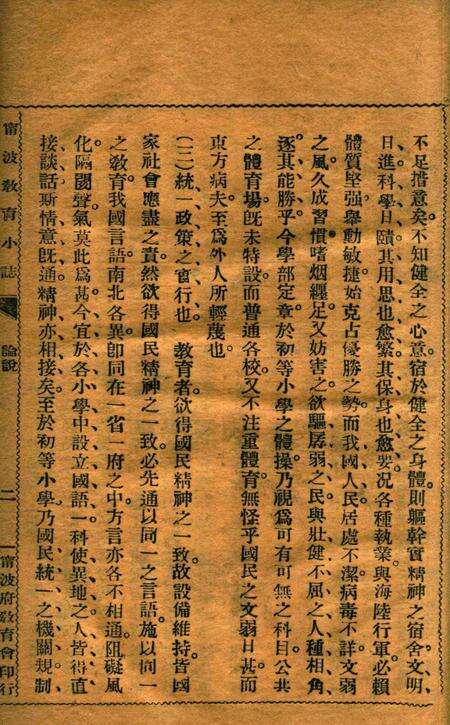 不足措意矣。不知健全之心意。宿於健全之身體。則軀幹實精神之宿舍。文明
日進。科學日賾。其用思也愈繁。其保身也愈要。况各種執業。與海陸行軍。必賴
體質堅强。舉動敏捷。始克占優勝之勢。而我國人民。居處不潔。病毒不詳。文弱
之風。久成習慣。嗜烟纏足。又妨害之。欲驅孱弱之民。與壯健不屈之人種相角
逐。其能勝乎。今學部定章。於初等小學之體操。乃視爲可有可無之科目。公共
之體育場。旣未特設。而普通各校。又不注重體育。無怪乎國民之文弱日甚。而
東方病夫。至爲外人所輕蔑也。
(三)統一政策之實行也 教育者。欲得國民精神之一致。故設備維持。皆國
家社會應盡之責。然欲得國民精神之一致。必先通以同一之言語。施以同一
之敎育。我國言語。南北各異。卽同在一省一府之中。方言亦各不相通。阻礙風
化。隔閡聲氣。莫此爲甚。今宜於各小學中。設立國語一科。使異地之人。皆得直
接談話。斯情意旣通。精神亦相接矣。至於初等小學。乃國民統一之機關。規制
甯波敎育小誌 論說 二 甯波府敎育會印行